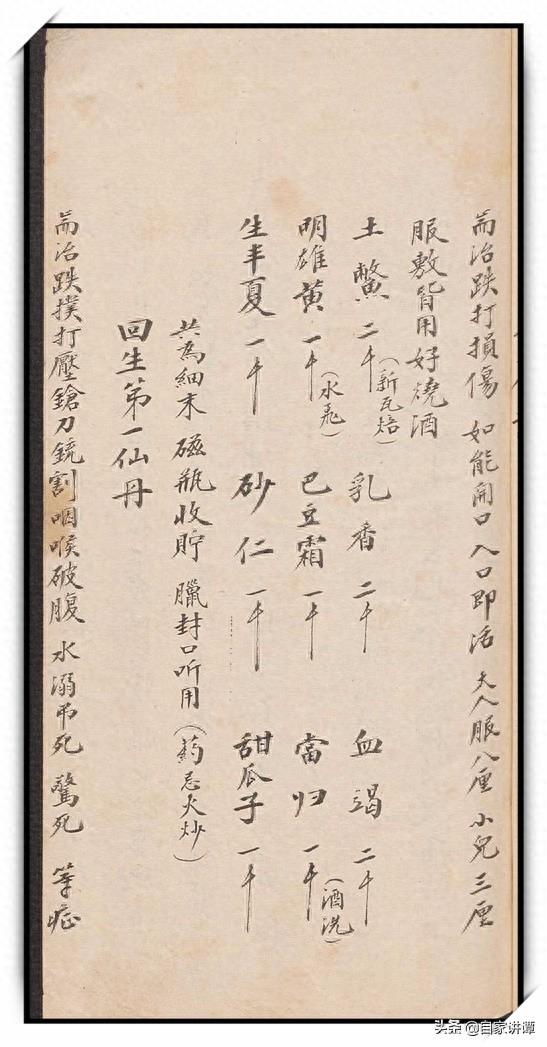 耑治跌打損傷 如能開口 入口即活 大人服八厘 小兒三厘
服敷皆用好燒酒
土鱉二 (新瓦焙) 乳香二 血竭二
明雄黃一 (水飛) 巴豆霜一 當归一 (酒洗)
生半夏一 砂仁一 甜瓜子一
共為細末 磁瓶收貯 臘封口听用 (药忌火炒)
回生第一仙丹
耑治跌撲打壓鎗刀銃割咽喉破腹 水溺吊死 驚死 等症
头条 @自家讲谭